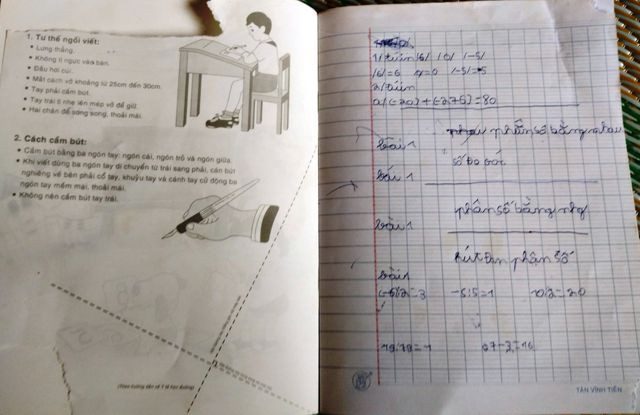 1. Tư thế ngồi viết:
• Lưng thẳng.
• Không tì ngực vào bàn.
• Đầu hơi cúi.
• Mắt cách vở khoảng từ 25cm đến 30cm.
• Tay phải cầm bút.
• Tay trái tì nhẹ lên mép vở để giữ.
• Hai chân để song song, thoải mái.
2. Cách cầm bút:
• Cầm bút bằng ba ngón tay: ngón cái, ngón trỏ và ngón giữa.
• Khi viết dùng ba ngón tay di chuyển từ trái sang phải, cán bút
nghiêng về bên phải cổ tay, khuỷu tay và cánh tay cử động ba
ngón tay mềm mại, thoải mái.
• Không nên cầm bút tay trái.
1/ tính /6/ /0/ /-5/
/6/=6 /-5/=5
2/ tính
a/(-20)+(-275)=80
bài 1 phân số bằng nhau
bài 1
bài 1 phân số bằng
phân số
bài 1
-5:5=1 10/2=20
TÂN VĨNH TIẾN